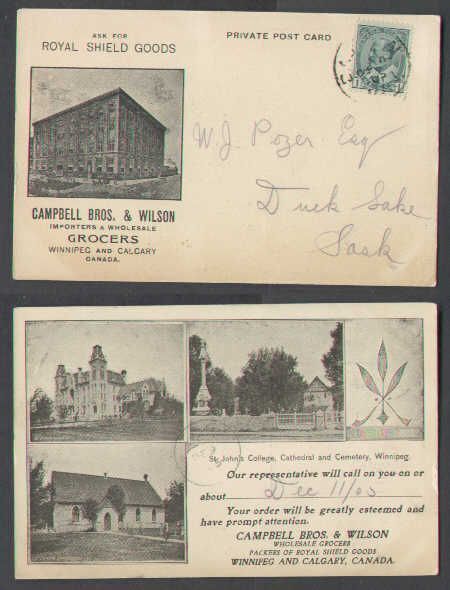 ASK FOR
ROYAL SHIELD GOODS
PRIVATE POST CARD
CAMPBELL BROS. & WILSON
IMPORTERS & WHOLESALE
GROCERS
WINNIPEG AND CALGARY
CANADA.
W. J. Pozer Esq
Duck Lake
Sask
St. John's College, Cathedral and Cemetery, Winnipeg.
Our representative will call on you on or
about Dec 11/05
Your order will be greatly esteemed and
have prompt attention.
CAMPBELL BROS. & WILSON
WHOLESALE GROCERS
PACKERS OF ROYAL SHIELD GOODS
WINNIPEG AND CALGARY, CANADA.